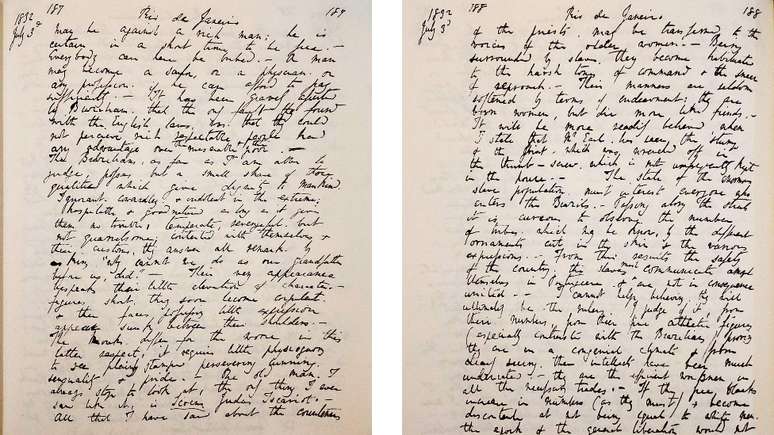 1832 187 Rio de Janeiro 187
July 3d may be against a rich man; he is
certain in a short time to be free. —
Everybody can here be bribed. — A man
may become a sailor, or a physician or
any profession, if he can afford to pay
sufficiently. — It has been gravely asserted
by Brazilians that the only fault they found
with the English laws, was that they could
not perceive rich respectable people had
any advantage over the miserable & the poor. —
The Brazilians, as far as I am able to
judge, possess but a small share of those
qualities which give dignity to mankind.
Ignorant, cowardly, & indolent in the extreme;
hospitable & good natured as long as it gives
them no trouble; temperate, revengeful, but
not quarrelsome; contented with themselves &
their customs, they answer all remarks by
asking "why cannot we do as our grandfathers
before us did." — Their very appearance
bespeaks their little elevation of character. —
figures short, they soon become corpulent
& their faces, possessing little expression
appear sunk between their shoulders. —
The Monks differ for the worse in this
latter respect; it requires little physiognomy
to see plainly stamped persevering cunning,
sensuality & pride. — One old man, I
always stop to look at, the only thing I ever
saw like it, is Judas Iscariot. —
All that I have said about the countenances
1832 188 Rio de Janeiro 188
July 3d of the priests may be transferred to the
voices of the older women. — Being
surrounded by slaves, they become habituated
to the harsh tones of command & the sneer
of reproach. — Their manners are seldom
softened by terms of endearment; they are
born women, but die more like fiends. —
It will be more readily believed when
I state that Mr Earl has seen the stump
of the joint, which was wrenched off in
the thumb-screw which is not unfrequently kept
in the house. — The state of the enormous
slave population must interest everyone who
enters the Brazils. — Passing along the streets
it is curious to observe the numbers
of tribes which may be known by the different
ornaments cut in the skin & the various
expressions. — From this results the safety
of the country, the slaves must communicate amongst
themselves in Portugeese & are not in consequence
united. — I cannot help believing they will
ultimately be the rulers. I judge of it from
their numbers, from their fine athletic figures,
(especially contrasted with the Brazilians) proving
they are in a congenial climate, & from
clearly seeing their intellects have been much
underrated. — they are the efficient workmen in
all the necessary trades. — If the free blacks
increase in numbers (as they must) & become
discontented at not being equal to white men,
the epoch of the general liberation would not